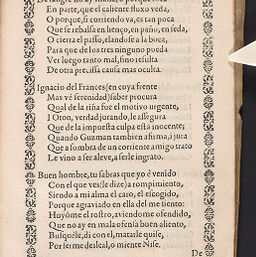 En parte, que el caliente fluxo veda,
O porque, si corriendo va, es tan poca
Que se rebalsa en lienço, en paño, en seda,
O cierra el passo, elandose a la boca,
Para que de los tres ninguno pueda
Ver luego tanto mal, sino resulta
De otra precissa causa mas oculta.
Ignacio del Frances (en cuya frente
Mas vè serenidad) saber procura
Qual de la riña fue el motivo urgente,
I Oton, verdad jurando, le assegura
Que de la impuesta culpa està inocente;
Quando Guzman tambien afirma, i jura
Que a sombra de un corriente amigo trato
Le vino a ser aleve, a serle ingrato.
Buen hombre, tu sabras que yo è venido
Con el que ves (le dize) a rompimiento,
Siendo a mi alma el caro, el escogido,
Porque agraviado en ella del me siento:
Huyòme el rostro, aviendome ofendido,
Que no ay en mal a ofensa buen aliento,
Busquèle, di con el, matarle quise,
Por serme desleal, o miente Nise.
De